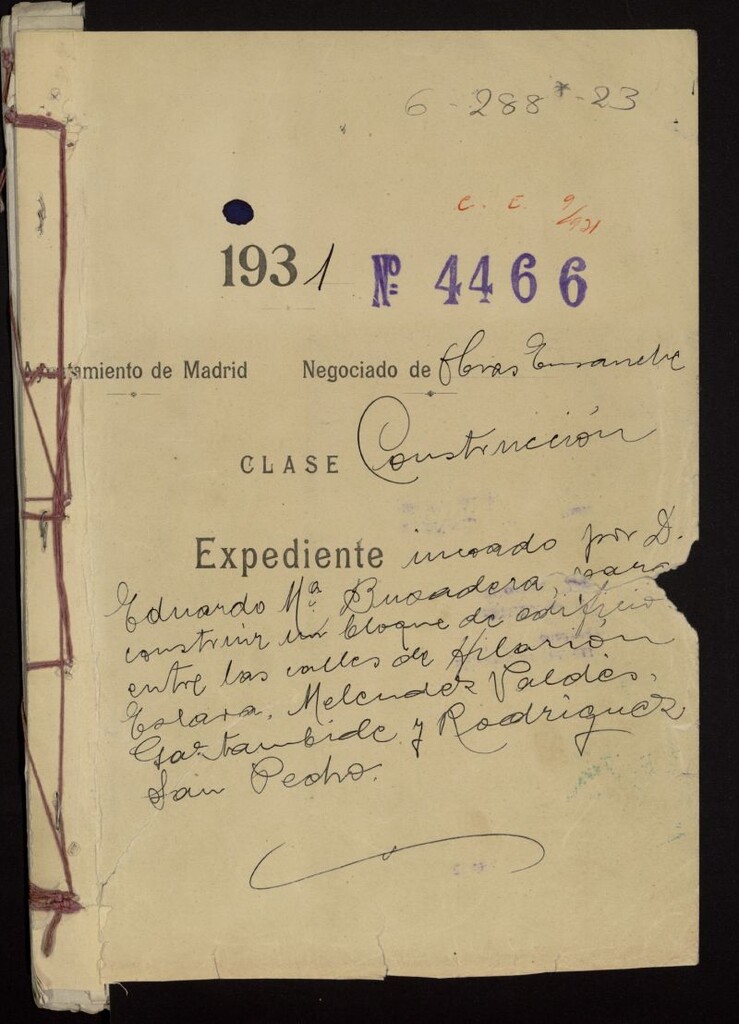 6-288*-23
C. E. 9/931
1931 Nº 4466
Ayuntamiento de Madrid Negociado de Obras Ensanche
CLASE Construcción
Expediente incoado por D.
Eduardo Mª Busadera, para
construir un bloque de edificio
entre las calles de Hilarión
Eslava, Melendez Valdés,
Gaztambide y Rodriguez
San Pedro.